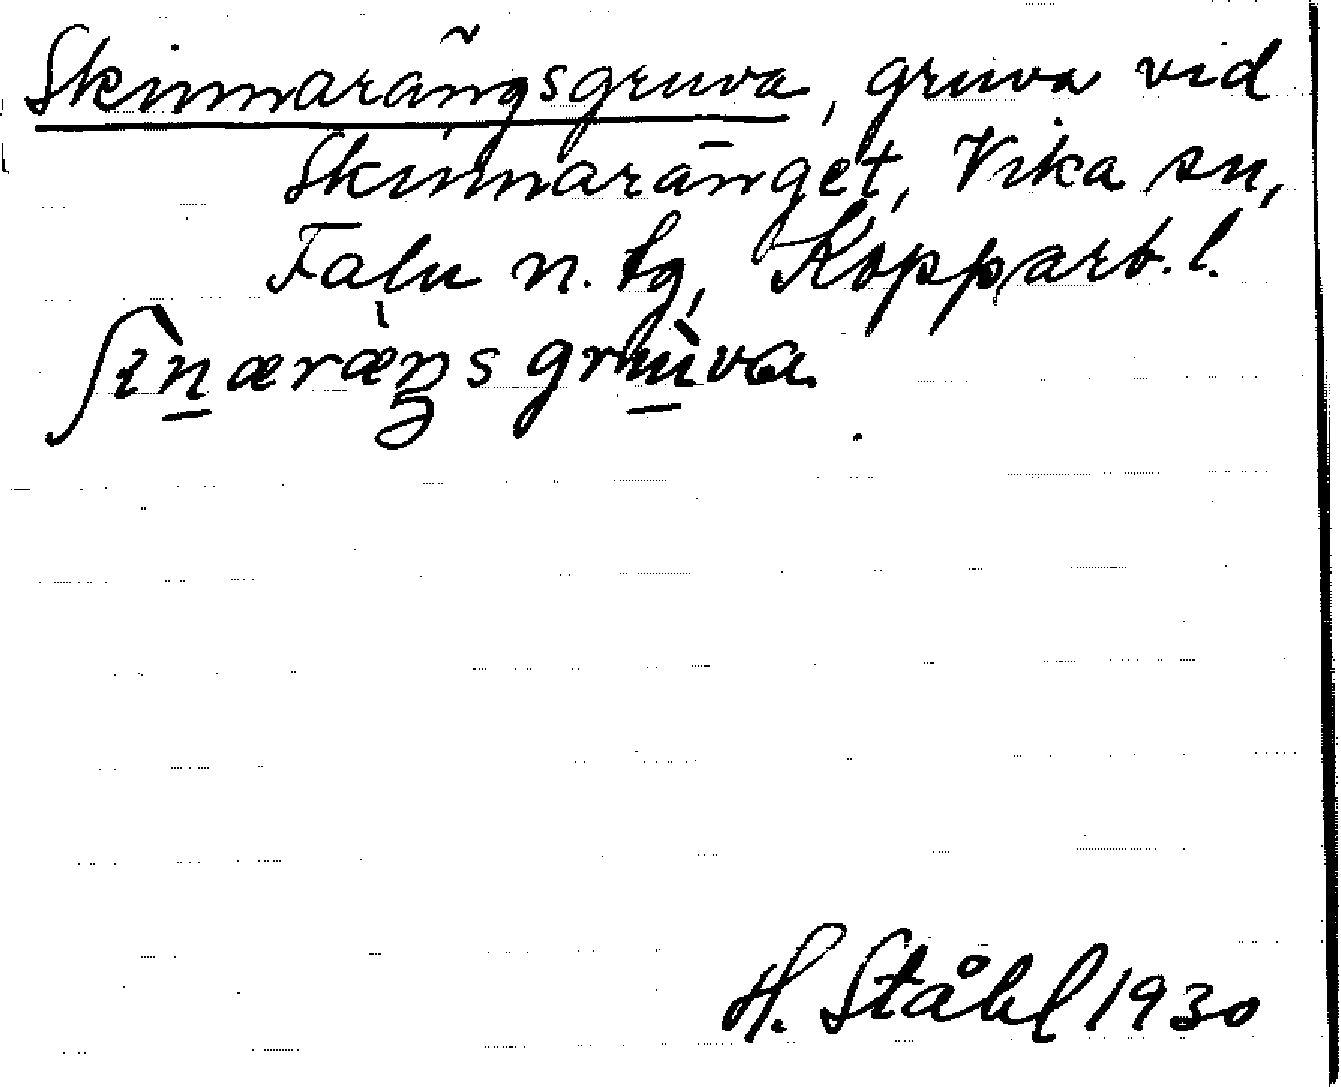 Skinnarängsgruva, gruva vid
Skinnaränget, Vika sn,
Falu n. tg, Kopparb. l.
ʃìn̲æræ̀ŋs grùva.
H. Ståhl 1930